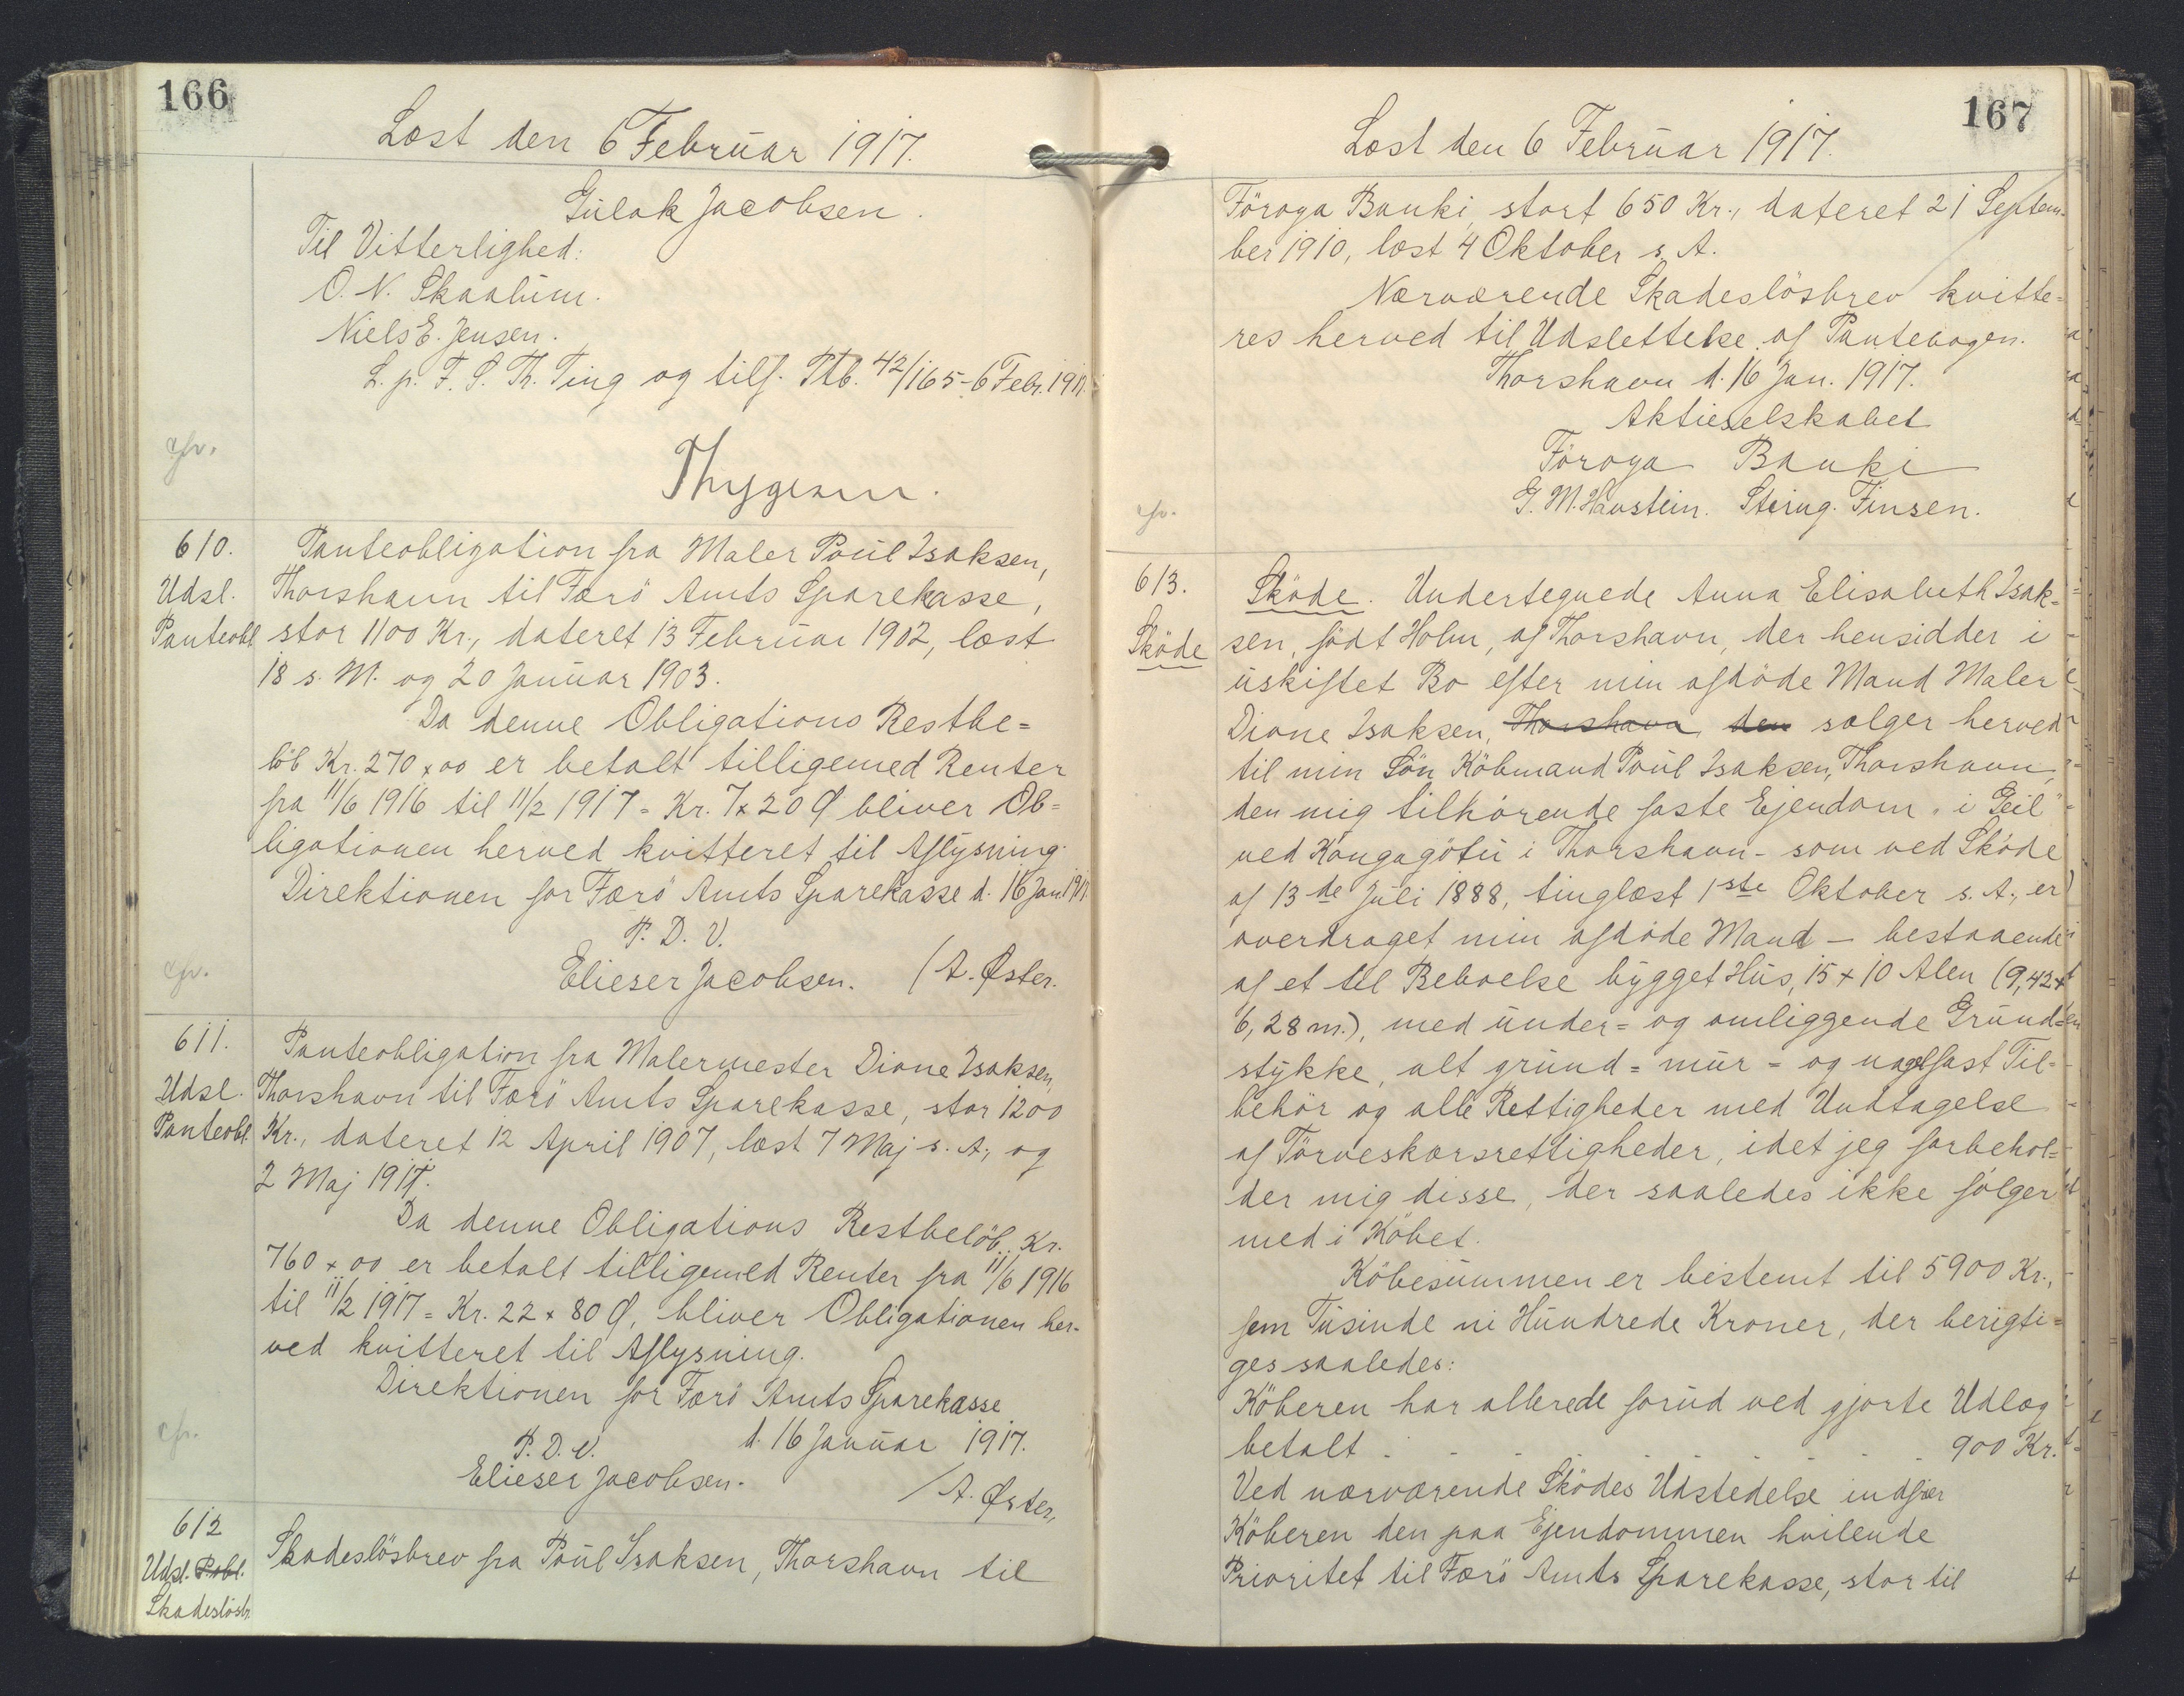 166
Læst den 6 Februar 1917.
Gulak Jacobsen.
Til Vitterlighed:
O. N. Skaalum.
Niels E. Jensen.
L. p. F. S. Th. Ting og tilf. Ptb. 42/165 - 6 Febr. 1917.
cfr.
Thygesen.
610.
Udsl.
Panteobl.
Panteobligation fra Maler Poul Isaksen,
Thorshavn til Færö Amts Sparekasse,
stor 1100 Kr., dateret 13 Februar 1902, læst
18 s. M. og 20 Januar 1903.
Da denne Obligations Restbe=
löb Kr. 270 x 00 er betalt tilligemed Renter
fra 11/6 1916 til 11/2 1917 = Kr. 7 x 20 Ø bliver Ob=
ligationen herved kvitteret til Aflysning.
Direktionen for Færö Amts Sparekasse d. 16 Jan. 1917.
P. D. V.
Elieser Jacobsen. / A. Øster.
cfr.
611.
Udsl.
Panteobl.
Panteobligation fra Malermester Diane Isaksen,
Thorshavn til Færö Amts Sparekasse, stor 1200
Kr., dateret 12 April 1907, læst 7 Maj s. A., og
2 Maj 1911.
Da denne Obligations Restbelöb Kr.
760 x 00 er betalt tilligemed Renter fra 11/6 1916
til 11/2 1917 = Kr. 22 x 80 Ø, bliver Obligationen her-
ved kvitteret til Aflysning.
Direktionen for Færö Amts Sparekasse
d. 16 Januar 1917.
P. D. V.
Elieser Jacobsen.
/ A. Øster.
cfr.
612
Udsl. Pobl.
Skadeslösbr.
Skadeslösbrev fra Poul Isaksen, Thorshavn til
167
Læst den 6 Februar 1917.
Föroya Banki, stort 650 Kr., dateret 21 Septem-
ber 1910, læst 4 Oktober s. A.
Nærværende Skadeslösbrev kvitte=
res herved til Udslettelse af Pantebogen.
Thorshavn d. 16 Jan. 1917.
Aktieselskabet
Föroya Banki
G. M. Havstein. Steing. Finsen.
cfr.
613.
Sköde
Sköde. Undertegnede Anna Elisabeth Isak=
sen, födt Holm, af Thorshavn, der hensidder i
uskiftet Bo efter min afdöde Mand Maler
Diane Isaksen, Thorshavn, den sælger herved
til min Sön Köbmand Poul Isaksen, Thorshavn,
den mig tilhörende faste Ejendom "i Geil"
ved Kongagötu i Thorshavn - som ved Sköde
af 13de Juli 1888, tinglæst 1ste Oktober s. A., er
overdraget min afdöde Mand - bestaaende
af et til Beboelse bygget Hus, 15 x 10 Alen (9,42 x
6,28 m.), med under= og omliggende Grund=
stykke, alt grund= mur= og nagelfast Til=
behör og alle Rettigheder med Undtagelse
af Törveskærsrettigheder, idet jeg forbehol=
der mig disse, der saaledes ikke fölger
med i Köbet.
Köbesummen er bestemt til 5900 Kr.,
fem Tusinde ni Hundrede Kroner, der berigti=
ges saaledes:
Köberen har allerede forud ved gjorte Udlæg
betalt . . . . . . . . 900 Kr.
Ved nærværende Sködes Udstedelse indfrier
Köberen den paa Ejendommen hvilende
Prioritet til Færö Amts Sparekasse, stor til